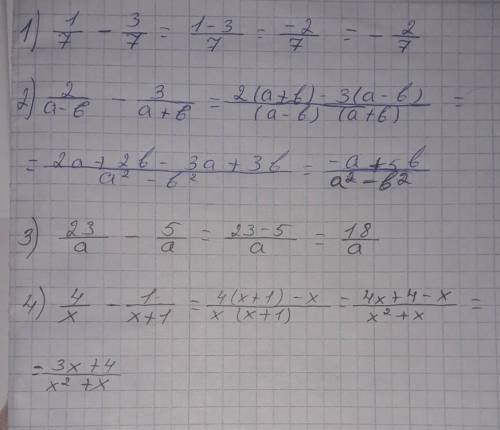 1) 1/7 - 3/7 = (1-3)/7 = -2/7 = - 2/7
2) 2/(a-в) - 3/(a+в) = (2(a+в) - 3(a-в))/((a-в) (a+в)) =
= (2a + 2в - 3a + 3в)/(a² - в²) = (-a + 5в)/(a² - в²)
3) 23/a - 5/a = (23-5)/a = 18/a
4) 4/x - 1/(x+1) = (4(x+1) - x)/(x (x+1)) = (4x+4-x)/(x²+x) =
= (3x+4)/(x²+x)